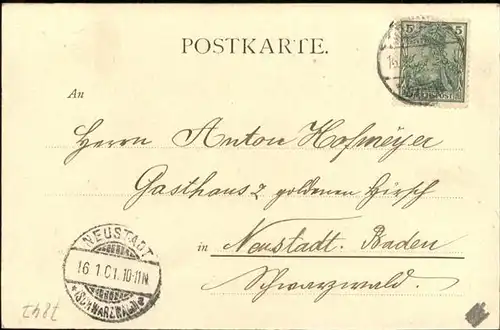 POSTKARTE.
5 5
An
Herrn Anton Hofmeyer
Gasthaus z goldenen Hirsch
in Neustadt. Baden
Schwarzwald.
NEUSTADT
16.1.01.10-11N.
(SCHWARZWALD)
7842